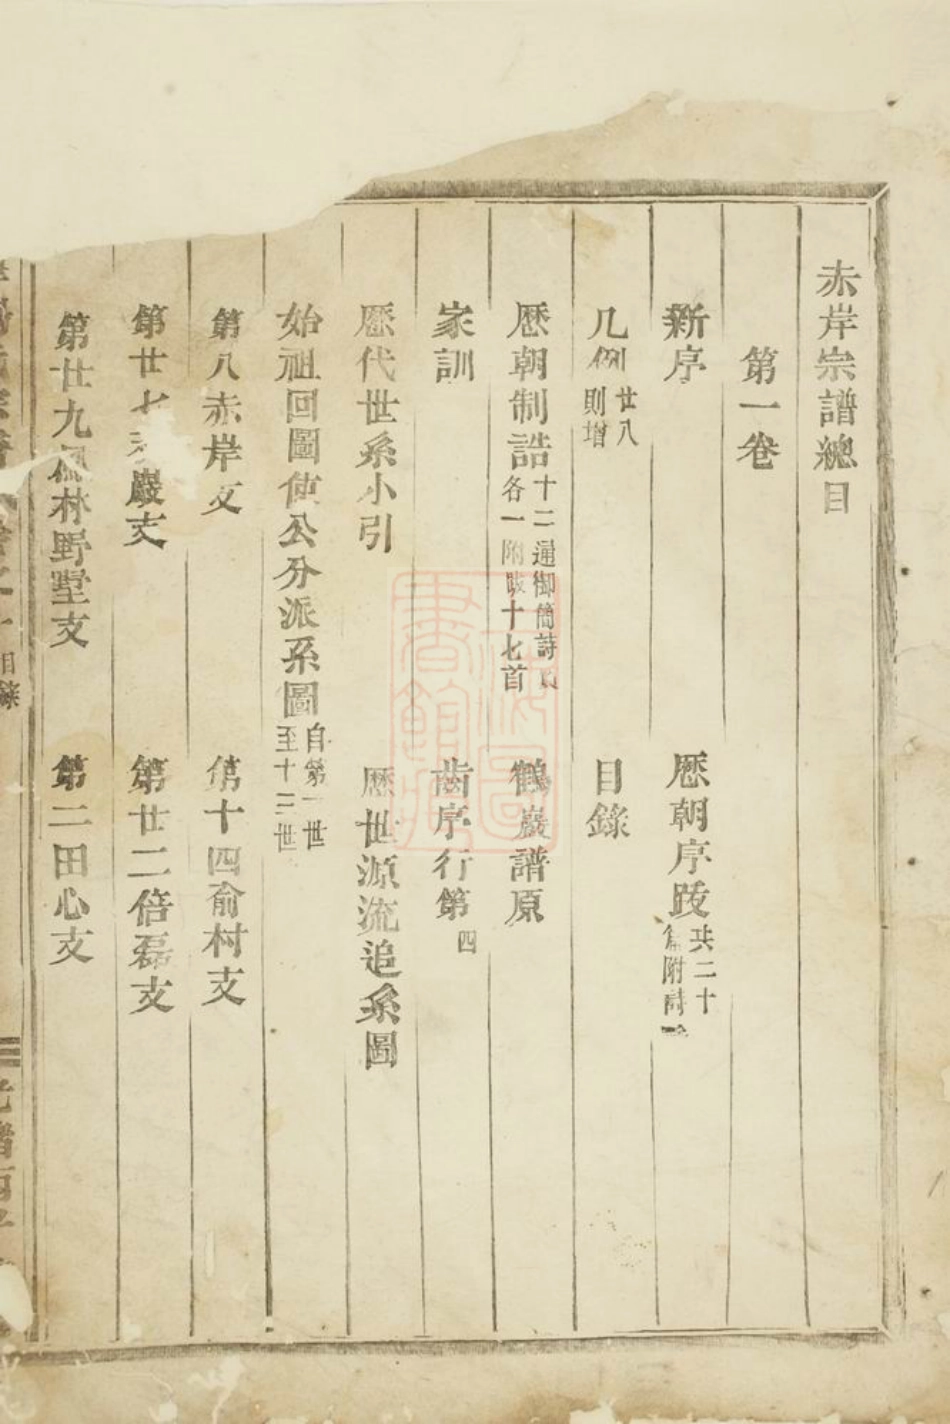 赤岸宗譜總目
第一卷
新序　歷朝序跋共二十篇附詩
凡例廿八則增　目錄
歷朝制誥十二各一通御簡詩附跋十七首　鶴巖譜原
家訓　齒序行第四
歷代世系小引　歷世源流追系圖
始祖回圖使公分派系圖自第一世至十二世
第八赤岸支　第十四俞村支
第廿七　巖支　第廿二倍磊支
第廿九　林野墅支　第二田心支
目錄
光緒丙子